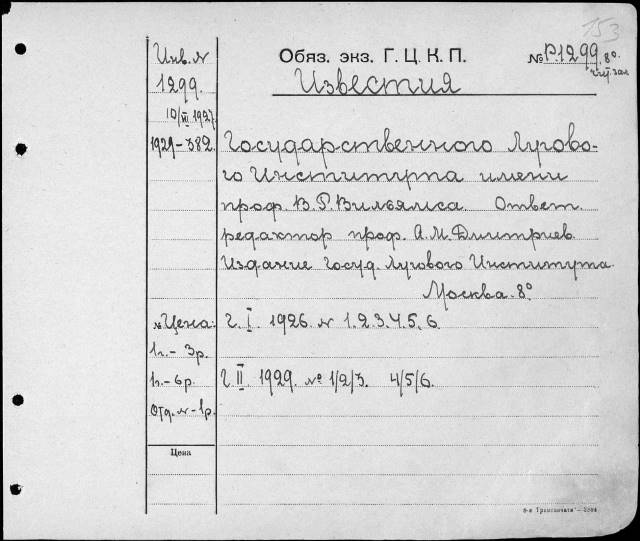 153
Обяз. экз. Г. Ц. К. П.
№ Р.1299. 8°
чит. зал
Известия
Инв. №
1299.
10/III 1927.
1929-382.
Государственного Лугово-
го Института имени
проф. В. Р. Вильямса. Ответ.
редактор проф. А. М. Дмитриев
Издание Госуд. Лугового Института.
Москва. 8°
№ Цена:
1г.- 3р.
1г.- 6р.
Отд. №- 1р.
Г. I. 1926. № 1.2.3.4.5.6.
Г. II. 1929. № 1/2/3. 4/5/6.
Цена
8-я Транспечати—2384